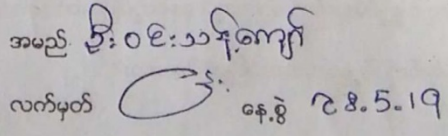 အမည် ဦးဝင်းသန့်ကျော်
လက်မှတ် နေ့စွဲ 28.5.19